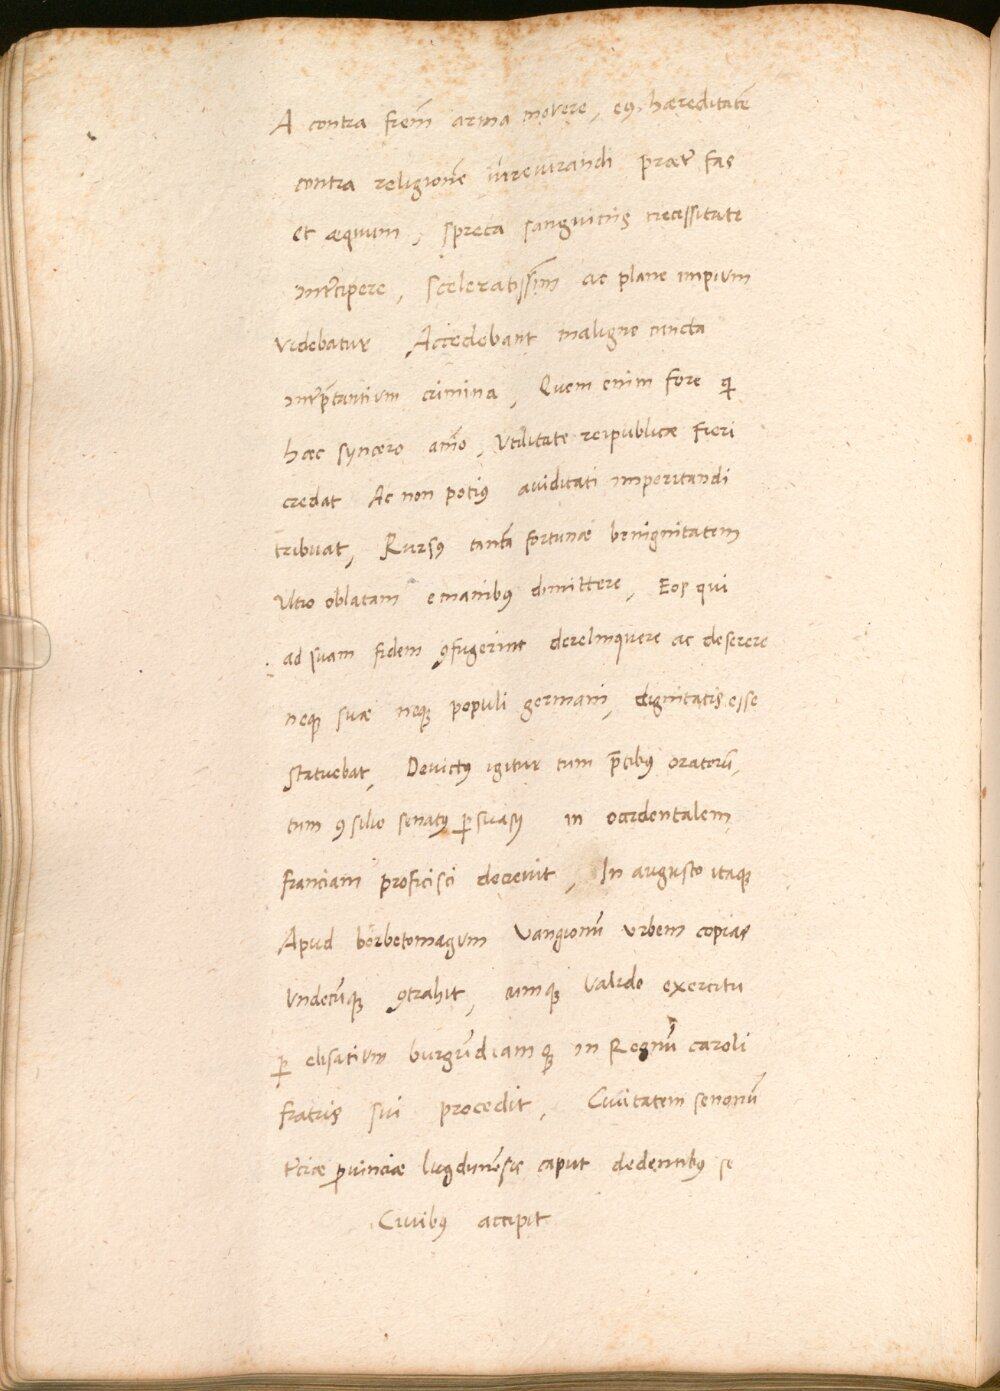 A contra frem̃ arma movere, eꝰ hæreditatẽ
contra religionẽ iurẽiurandi præt̃ fas
et æquum, spreta sanguinis necessitate
int̃cipere, sceleratiss̃im ac plane impium
videbatur Accedebant maligne cuncta
int̃p̃tantium crimina, Quem enim fore q̃
hæc syncero añĩo, Vtilitate reipublicæ fieri
credat Ac non potiꝰ auiditati imperitandi
tribuat, Rursꝰ tantã fortunæ benignitatem
Vltro oblatam e manibꝰ dimittere, Eos qui
ad suam fidem ꝯfugerint derelinquere ac deserere
neqꝫ suæ neqꝫ populi germani, dignitatis esse
statuebat, Deuictꝰ igitur tum p̃cibꝰ oratorũ,
tum ꝯsilio senatꝰ ꝑsuasꝰ in occidentalem
franciam proficisci decreuit, In augusto itaqꝫ
Apud borbetomagum Vangionũ vrbem copias
vndecũqꝫ ꝯtrahit, cumqꝫ valido exercitu
ꝑ elisatium burgũdiamqꝫ in Regnũ caroli
fratris sui procedit, Ciuitatem senonũ
t̃ciæ ꝓuinciæ lugdunẽsis caput dedentibꝰ se
Ciuibꝰ accipit